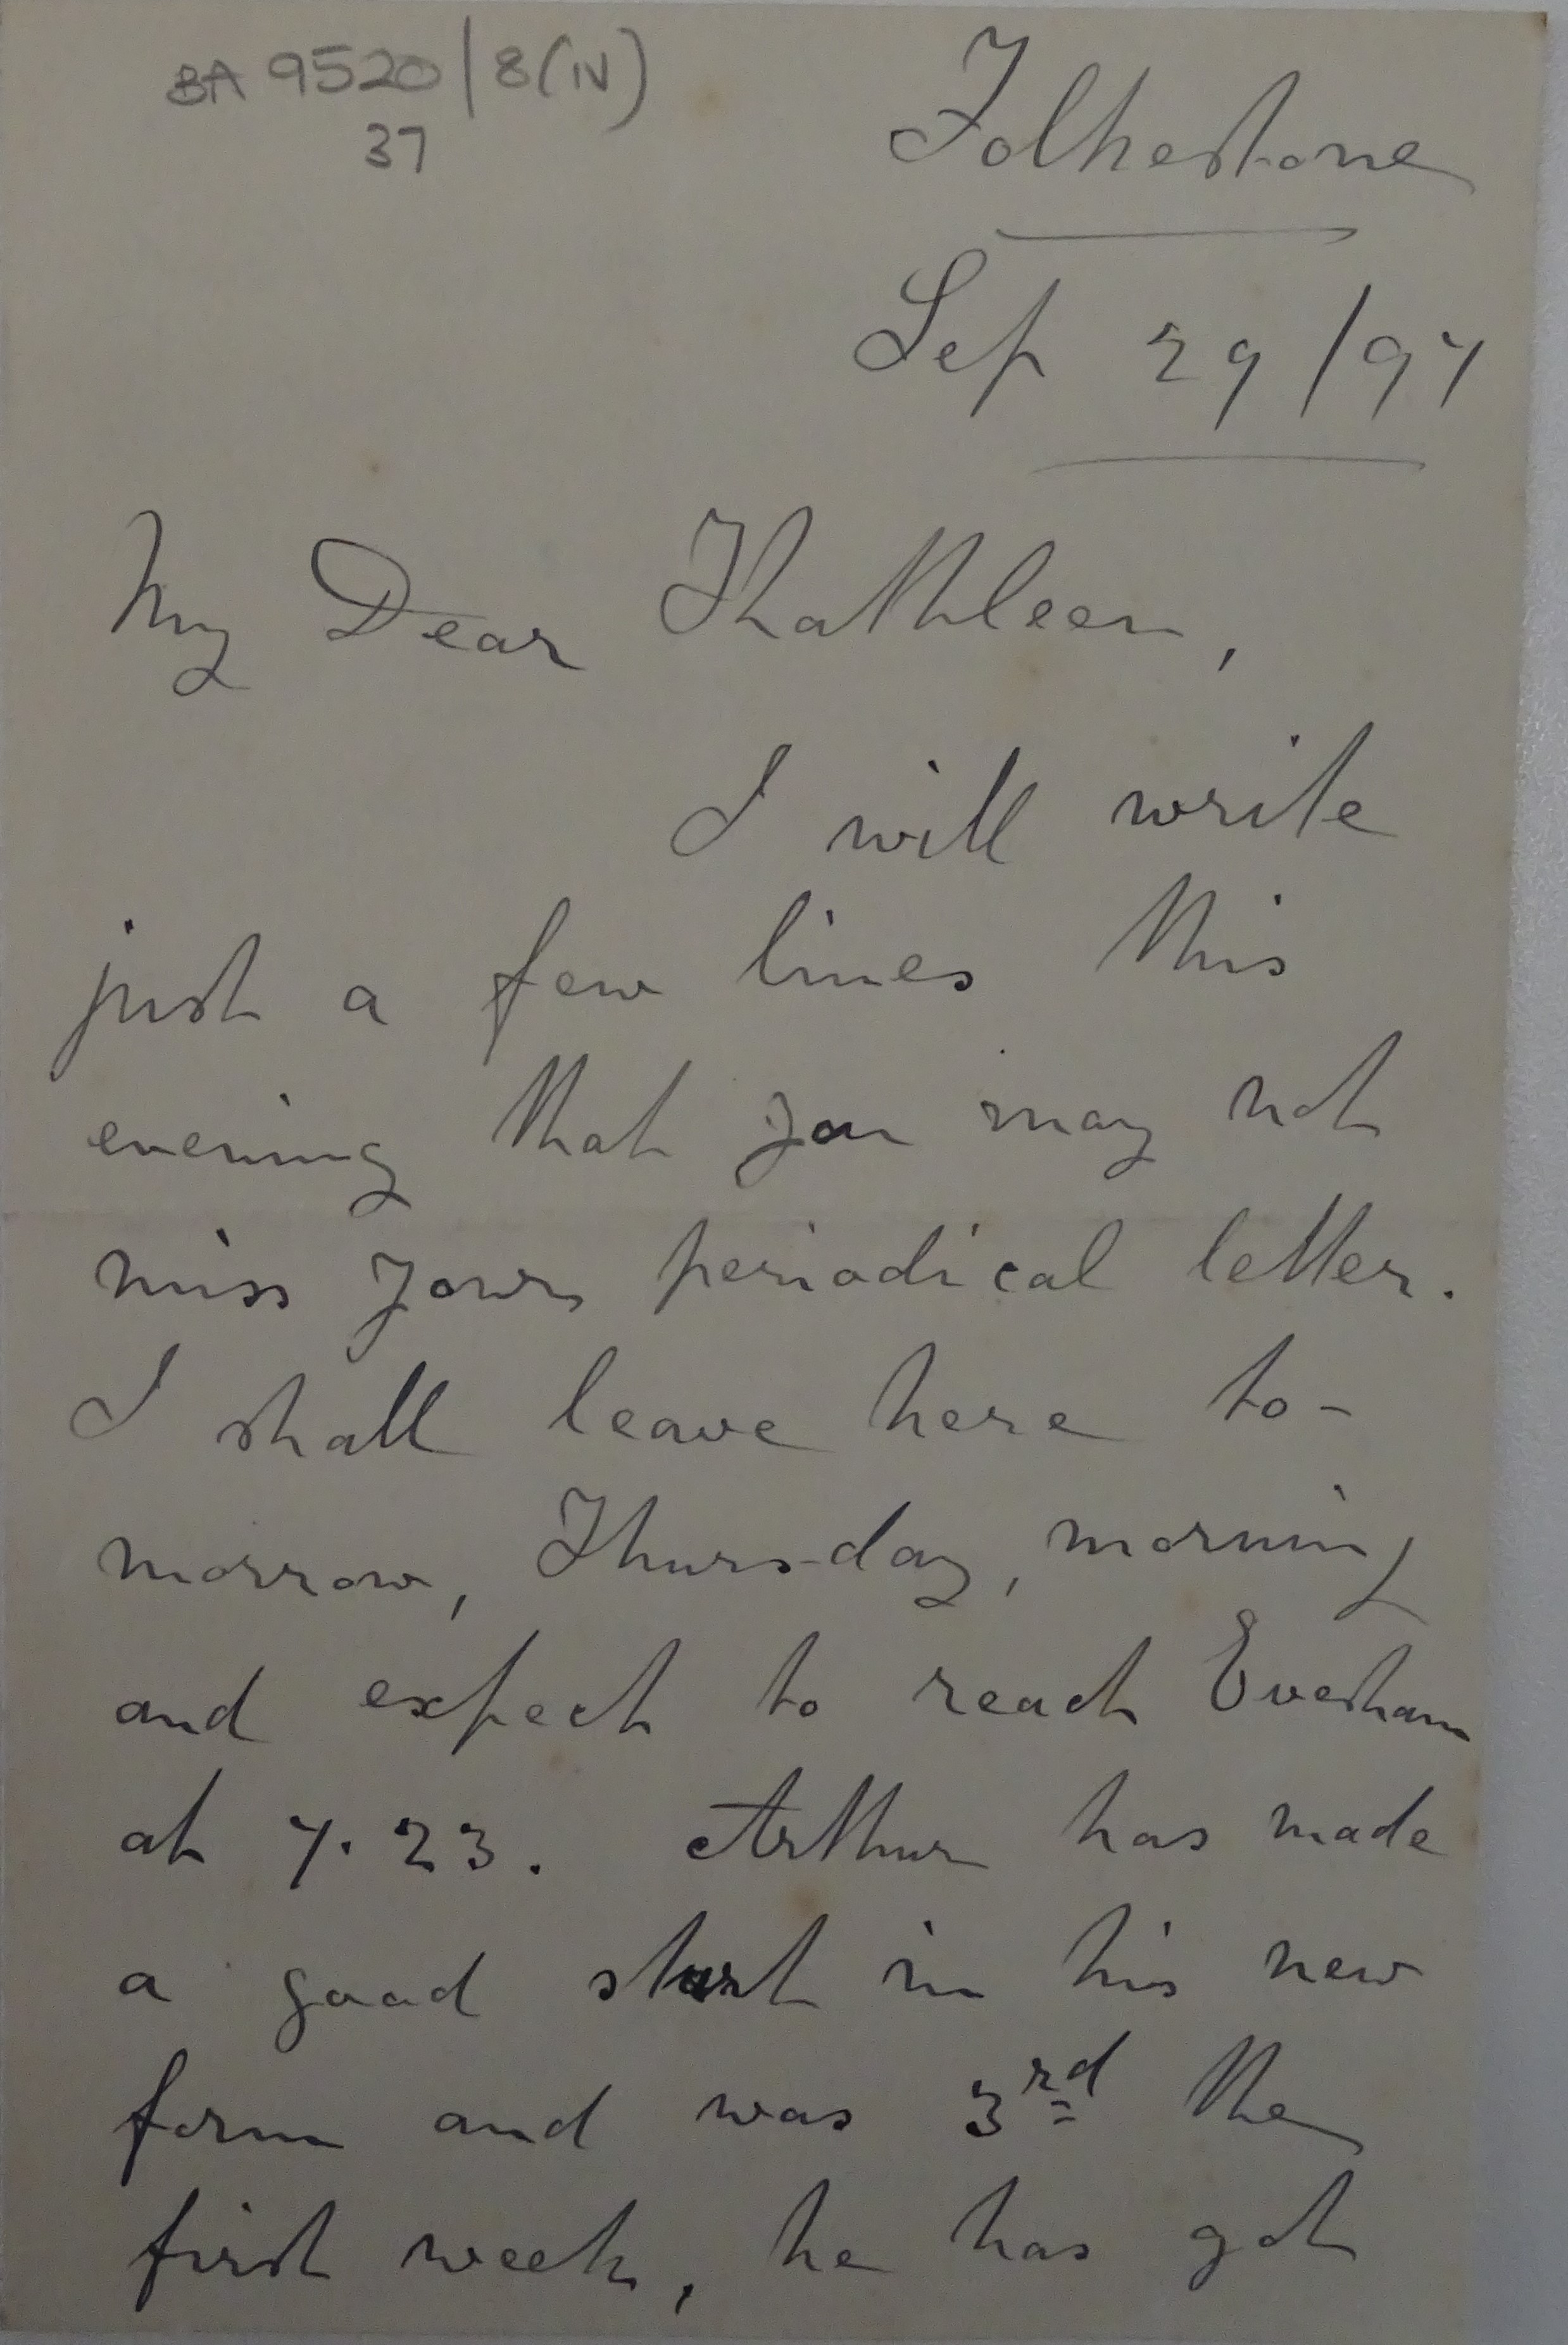 BA 9520/8(IV)
37
Folkestone
Sep 29/97
My Dear Kathleen,
I will write
just a few lines this
evening that you may not
miss your periodical letter.
I shall leave here to-
morrow, Thursday, morning
and expect to reach Evesham
at 7.23. Arthur has made
a good start in his new
form and was 3rd the
first week, he has got